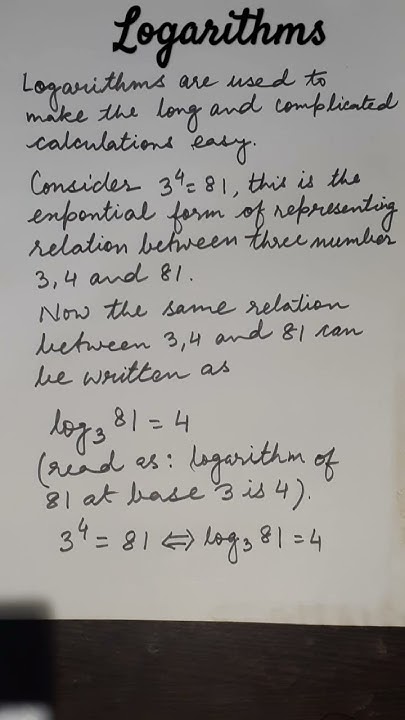 Logarithms
Logarithms are used to
make the long and complicated
calculations easy.
Consider 3⁴ = 81, this is the
enpontial form of representing
relation between three number
3, 4 and 81.
Now the same relation
between 3, 4 and 81 can
be written as
log₃ 81 = 4
(read as: logarithm of
81 at base 3 is 4).
3⁴ = 81 ⇔ log₃ 81 = 4